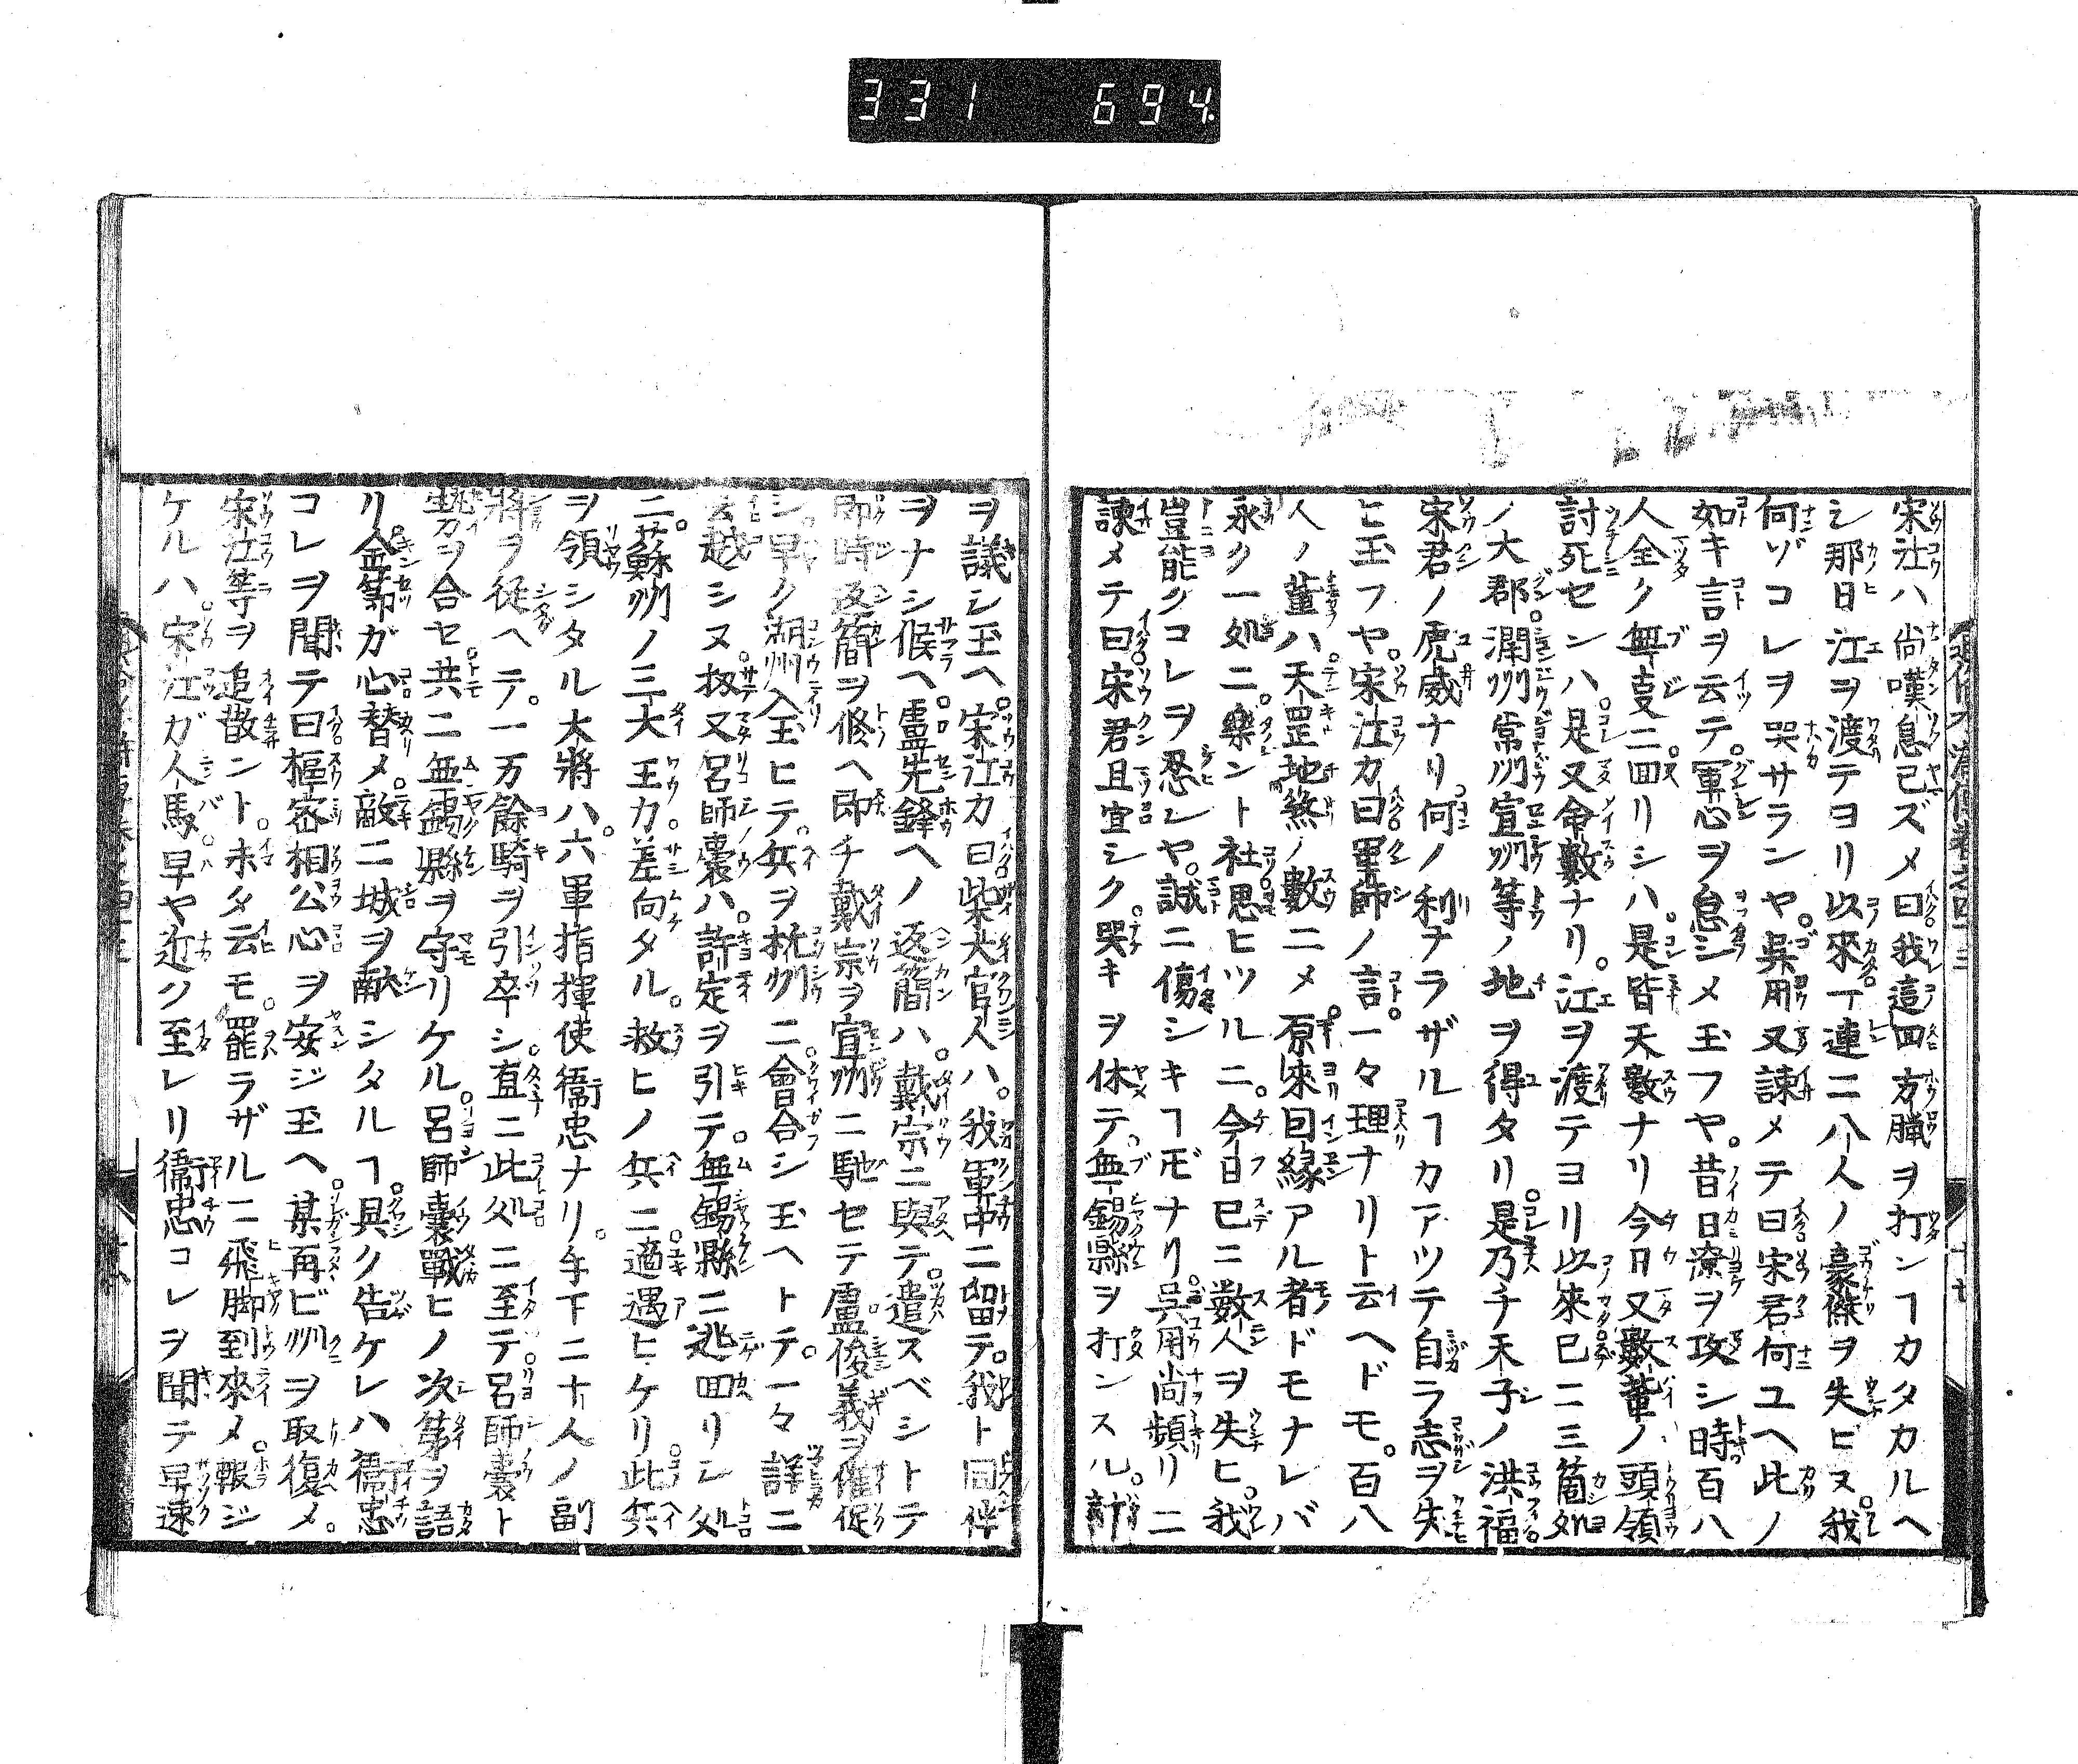 331 694
宋江ハ尚嘆息已ズメ曰我這囬方臘ヲ打ンヿカタカルヘ
シ那日江ヲ渡テヨリ以來一連ニ八人ノ豪傑ヲ失ヒヌ我
何ゾコレヲ哭サランヤ呉用又諫メテ曰宋君何ユヘ此ノ
如キ言ヲ云テ軍心ヲ怠シメ玉フヤ昔日遼ヲ攻シ時百八
人全ク無叓ニ囬リシハ是皆天數ナリ今日又數輩ノ頭領
討死センハ是又命數ナリ江ヲ渡テヨリ以來已ニ三箇処
ノ大郡潤州常州宣州等ノ地ヲ得タリ是乃チ天子ノ洪福
宋君ノ虎威ナリ何ノ利ナラザルヿカアツテ自ラ志ヲ失
ヒ玉フヤ宋江カ曰軍師ノ言一々理ナリト云ヘドモ百八
人ノ輩ハ天罡地煞ノ數ニメ原來因縁アル者ドモナレバ
永ク一処ニ樂ント社思ヒツルニ今日已ニ数人ヲ失ヒ我
豈能クコレヲ忍ンヤ誠ニ傷シキヿ𪜈ナリ呉用尚頻リニ
諫メテ曰宋君且宜シク哭キヲ休テ無錫縣ヲ打ンスル計
ヲ議シ玉ヘ宋江カ曰柴大官人ハ我軍中ニ留テ我ト同伴
ヲナシ候ヘ盧先鋒ヘノ返簡ハ戴宗ニ與テ遣スベシトテ
即時返簡ヲ修ヘ即チ戴宗ヲ宣州ニ馳セテ盧俊義ヲ催促
シ早ク湖州入玉ヒテ兵ヲ杭州ニ會合シ玉ヘトテ一々詳ニ
云越シヌ扨又呂師嚢ハ許定ヲ引テ無錫縣ニ逃囬リシ処
ニ蘇州ノ三大王カ差向タル救ヒノ兵ニ適遇ヒケリ此兵
ヲ領シタル大將ハ六軍指揮使衞忠ナリ手下ニ十人ノ副
將ヲ従ヘテ一万餘騎ヲ引卒シ直ニ此処ニ至テ呂師嚢ト
勢ヲ合セ共ニ無錫縣ヲ守リケル呂師嚢戰ヒノ次第ヲ語
リ金節ガ心替メ敵ニ城ヲ献シタルヿ具ク告ケレハ衞忠
コレヲ聞テ曰樞密相公心ヲ安ジ玉ヘ某再ビ州ヲ取復メ
宋江等ヲ追散ント未タ云モ罷ラザルニ飛脚到來メ報ジ
ケルハ宋江ガ人馬早ヤ近ク至レリ衞忠コレヲ聞テ早速